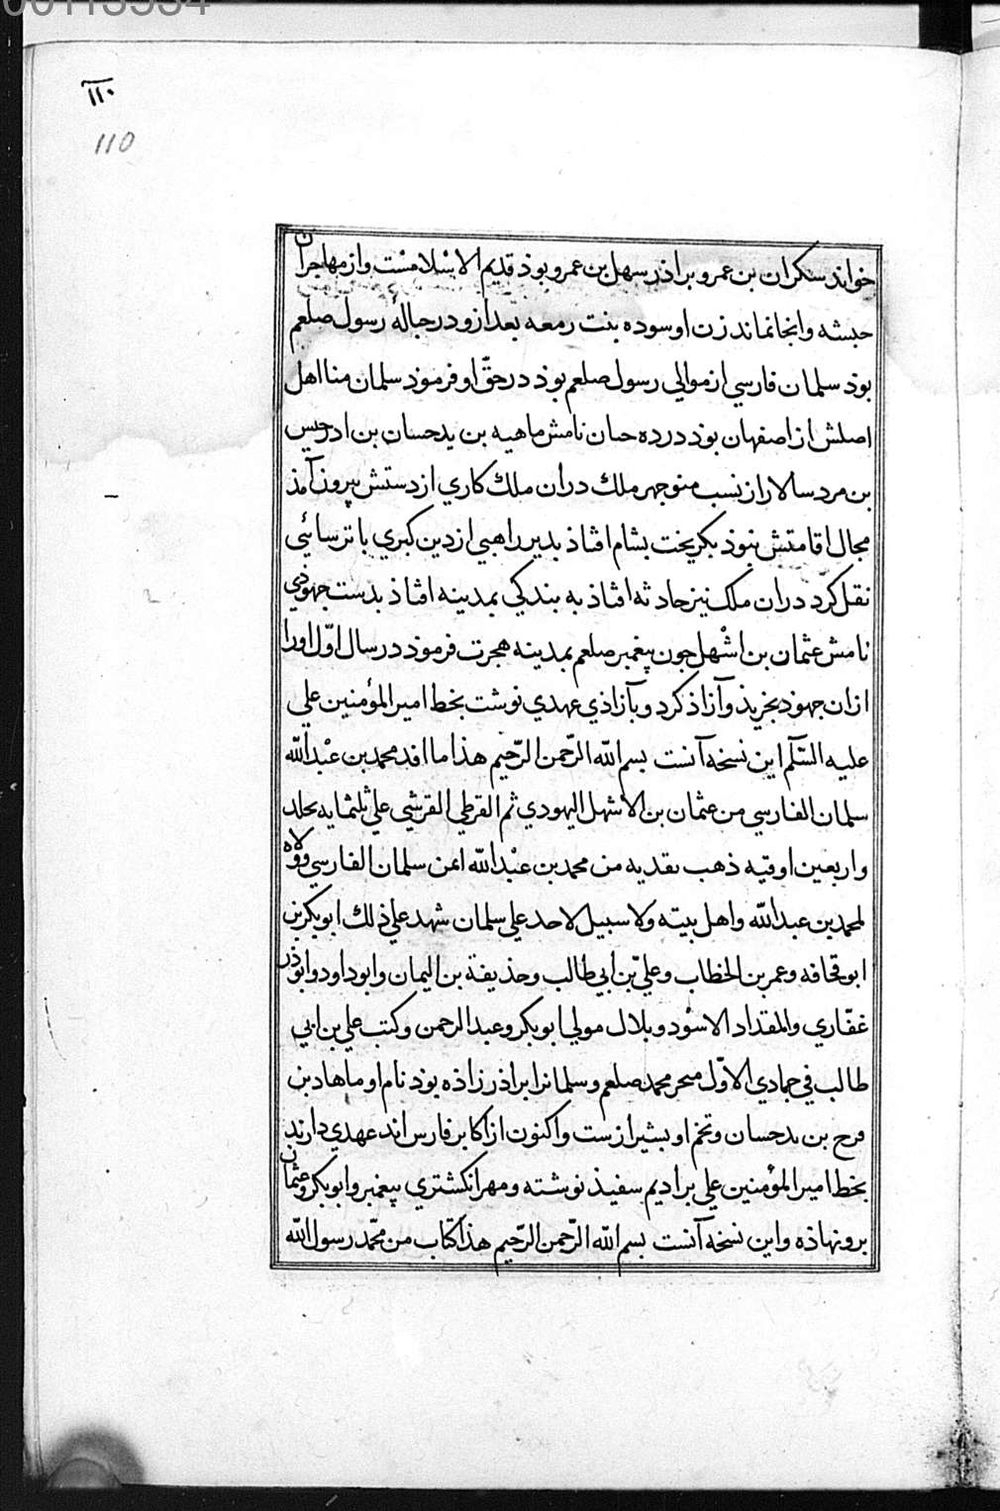 00113534
١١٠
110
خواند سکران بن عمرو براذر سهل بن عمرو بوذ قدیم الاسلامست و از مهاجران
حبشه و انجا نماند زن او سوده بنت رمعه بعد ازو در حبالهٔ رسول صلعم
بوذ سلمان فارسي از موالي رسول صلعم بوذ در حقّ او فرموذ سلمان منا اهل
اصلش از اصفهان بوذ در ده حیان نامش ماهیه بن بدحسان بن ادرجیس
بن مرد سالار از نسب منوجهر ملك در ان ملك کاري از دستش بیرون آمذ
مجال اقامتش نبوذ بکریخت بشام افتاذ بدیر راهبي از دین کبري با ترسائي
نقل کرد در ان ملک نیز حادثه افتاذ به بندکي بمدینه افتاذ بدست جهوذي
نامش عثمان بن اشهل جون پیغمبر صلعم بمدینه هجرت فرموذ در سال اوّل اورا
ازان جهوذ بخریذ و آزاذ کرد و بآزاذي عهدي نوشت بخط امیر المؤمنین علي
علیه السّلم این نسخه آنست بسم اللّه الرّحمن الرّحیم هذا ما افد محمد بن عبد اللّه
سلمان الفارسي من عثمان بن الاشهل الیهودي ثم القرظي القرشي علي ثلثمایه نخله
و اربعین اوقیه ذهب بفدیه من محمد بن عبد اللّه امن سلمان الفارسي وولاه
لمحمد بن عبد اللّه و اهل بیته و لا سبیل لاحد علي سلمان شهد علي ذلك ابو بکر بن
ابو قحافه و عمر بن الخطاب و عليّ بن ابي طالب و حذیفة بن الیمان و ابو داود و ابو ذر
غفّاري و المقداد الاسود و بلال مولي ابو بکر و عبد الرحمن و کتب علي بن ابي
طالب في جمادي الاوّل مهجر محمد صلعم و سلمانرا براذر زاذه بوذ نام او ماهاد بن
فرخ بن بدحسان و تخم او بشیرازست و اکنون از اکابر فارس اند عهدي دارند
بخط امیر المؤمنین علي بر ادیم سفیذ نوشته و مهر انکشتري پیغمبر و ابو بکر و عثمان
برو نهاذه و این نسخه آنست بسم اللّه الرّحمن الرّحیم هذا کتاب من محمّد رسول اللّه